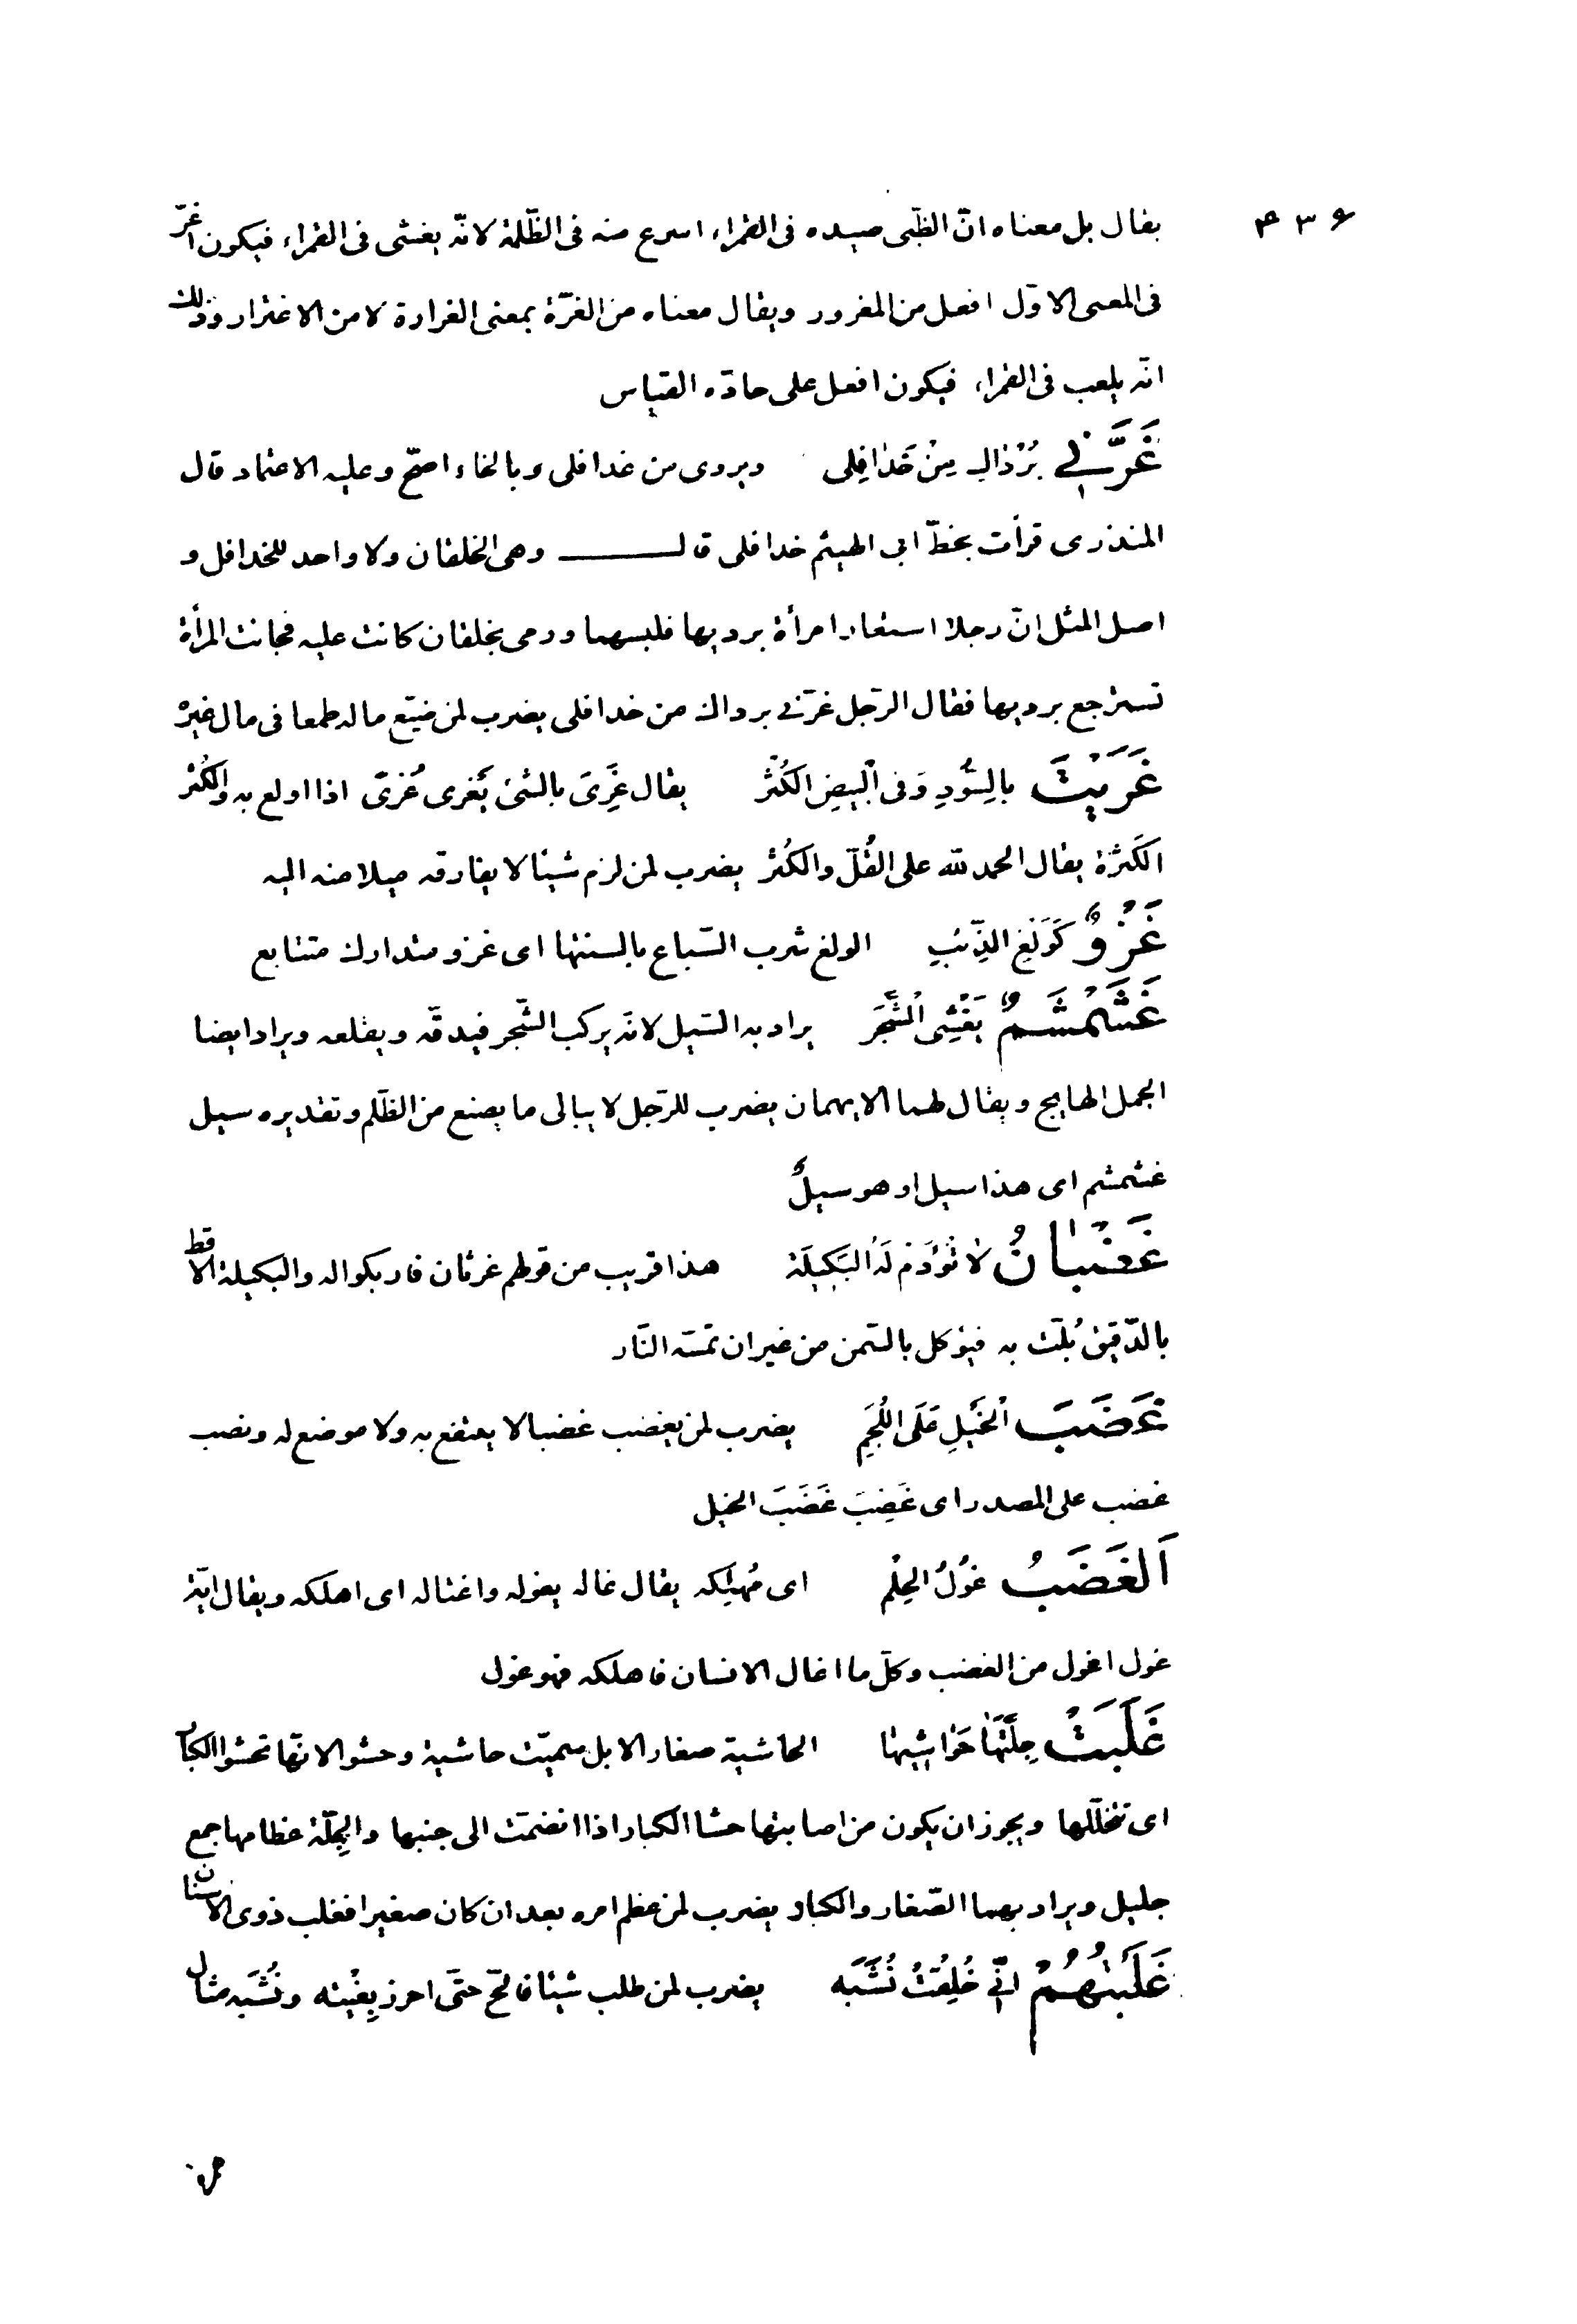 ۴۳۶
يقال بل معناه انّ الظّبى صيده فى القمراء اسرع منه فى الظّلمة لانّه يغشى فى القمراء فيكون اغرّ
فى المعنى الاوّل افعل من المغرور ويقال معناه من الغرّة بمعنى الغرارة لا من الاغترار وذلك
انّه يلعب فى القمراء فيكون افعل على حادّه القياس
غَرَّنِي بُرْدٰاكِ مِنْ خَدٰافِلِى ويروى من غدافلى وبالخاء اصحّ وعليه الاعتماد قال
المنذرى قرأت بخطّ ابى الهيثم خدافلى قال وهى الخلقان ولا واحد للخدافل و
اصل المثل انّ رجلا استعار امرأة برديها فلبسهما ورمى بخلقان كانت عليه فجائت المرأة
تسترجع برديها فقال الرّجل غرّنى برداك من خدافلى يضرب لمن ضيّع ماله طمعا فى مال غيره
غَرَيْتَ بِالسُّودِ وَفى الْبيضِ الكُثْرُ يقال غَرِىَ بالشئ يَغرى غَرىً اذا اولع به والكُثْر
الكَثرة يقال الحمد لله على القُلّ والكُثر يضرب لمن لزم شيئا لا يفارقه ميلا منه اليه
غَزْوٌ كَوَلْغِ الذِّئبِ الولغ شرب السّباع بالسنتها اى غزو متدارك متتابع
غَشَمْشَمٌ يَغْشِى الْشَّجَرَ يراد به السّيل لانّه يركب الشّجر فيدقّه ويقلعه ويراد ايضا
الجمل الهايج ويقال لهما الايهمان يضرب للرّجل لا يبالى ما يصنع من الظّلم وتقديره سيل
غشمشم اى هذا سيل او هو سيلٌ
غَضْبٰانُ لاٰ تُؤدَمْ لَهُ الْبَكيلَة هذا قريب من قولهم غرثان فاربكواله والبكيلة الاقط
بالدّقيق بُلّت به فيؤكل بالسّمن من غير ان تمسّه النّار
غَضَبَ الْخَيلِ عَلَى اللُّجَمِ يضرب لمن يغضب غضبا لا ينتفع به ولا موضع له ونصب
غضب على المصدر اى غَضِبَ غَضَبَ الخيل
اَلْغَضَبُ غُولُ الحِلْم اى مُهلِكه يقال غاله يغوله واغتاله اى اهلكه ويقال ايّة
غول اغول من الغضب وكلّ ما اغال الانسان فاهلكه فهو غول
غَلَبَتْ جِلَّتَهٰا حَوٰاشِيهٰا الحاشية صغار الابل سميّت حاشية وحشوا لانّها تحشوا الكبار
اى تتخلّلها ويجوز ان يكون من اصابتها حشا الكبار اذا انضمّت الى جنبها والجِلّة عظامها جمع
جليل ويراد بهما الصّغار والكبار يضرب لمن عظم امره بعد ان كان صغيرا فغلب ذوى الاسنان
غَلَبْتُهُمْ انّى خُلِقْتُ نُشَبَه يضرب لمن طلب شيئا فالحّ حتّى احرز بِغْيته ونُشَبه مثال